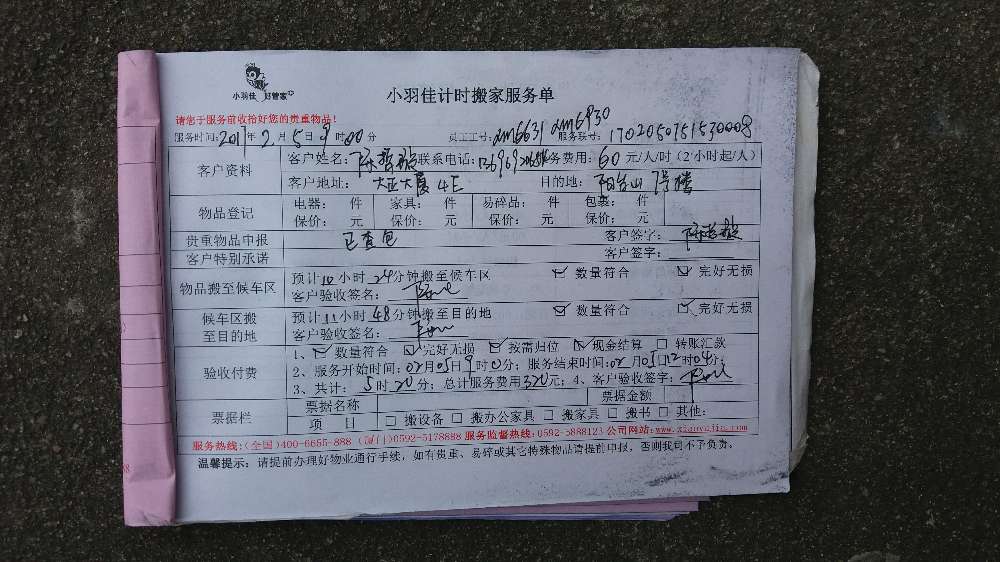 小羽佳 好管家
小羽佳计时搬家服务单
请您于服务前收拾好您的贵重物品!
服务时间:2017年2月5日9时00分 员工工号:xm6631 xm6930 服务联号:1702050751530008
客户资料 客户姓名: 联系电话: 服务费用:60元/人/时(2小时起/人)
客户地址:大亚大厦4E 目的地:阳台山
物品登记 电器: 件 家具: 件 易碎品: 件 包裹: 件
保价: 元 保价: 元 保价: 元 保价: 元
贵重物品申报 已查包 客户签字:
客户特别承诺 客户签字:
物品搬至候车区 预计10小时24分钟搬至候车区 数量符合 完好无损
客户验收签名:
候车区搬至目的地 预计11小时48分钟搬至目的地 数量符合 完好无损
客户验收签名:
验收付费 1、数量符合 完好无损 按需归位 现金结算 转账汇款
2、服务开始时间:02月05日9时0分;服务结束时间:02月05日12时04分;
3、共计:5时20分;总计服务费用320元;4、客户验收签字:
票据栏 票据名称 票据金额
项 目 搬设备 搬办公家具 搬家具 搬书 其他:
服务热线:(全国)400-6655-888 (厦门)0592-5178888 服务监督热线:0592-5888123 公司网站:www.xiaoyujia.com
温馨提示:请提前办理好物业通行手续,如有贵重、易碎或其它特殊物品请提前申报,否则我司不予负责。